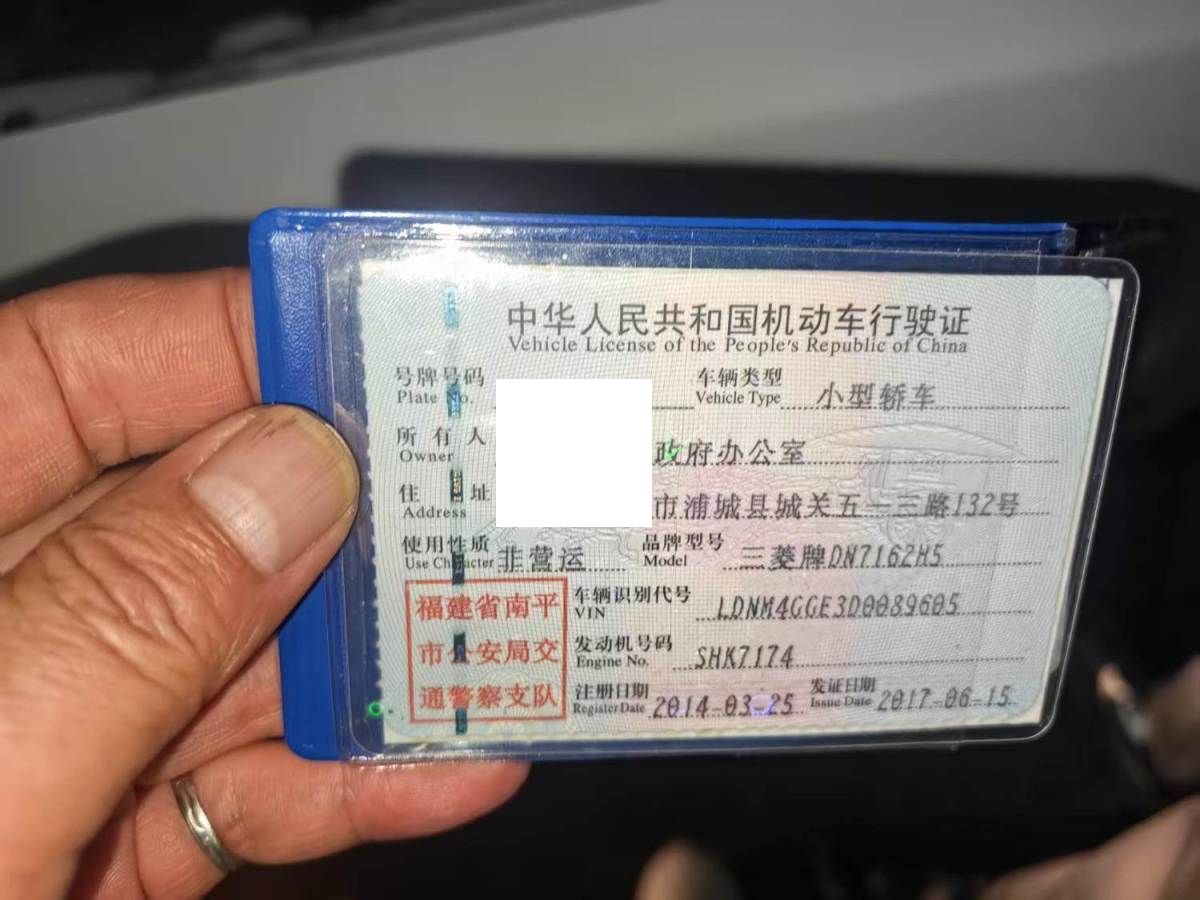 中华人民共和国机动车行驶证
Vehicle License of the People's Republic of China
号牌号码
Plate No.
车辆类型 小型轿车
Vehicle Type
所有人 政府办公室
Owner
住址 市浦城县城关五一三路132号
Address
使用性质 非营运
Use Character
品牌型号 三菱牌DN7162H5
Model
福建省南平
市公安局交
通警察支队
车辆识别代号 LDNM4GGE3D0089605
VIN
发动机号码 SHK7174
Engine No.
注册日期 2014-03-25
Register Date
发证日期 2017-06-15
Issue Date